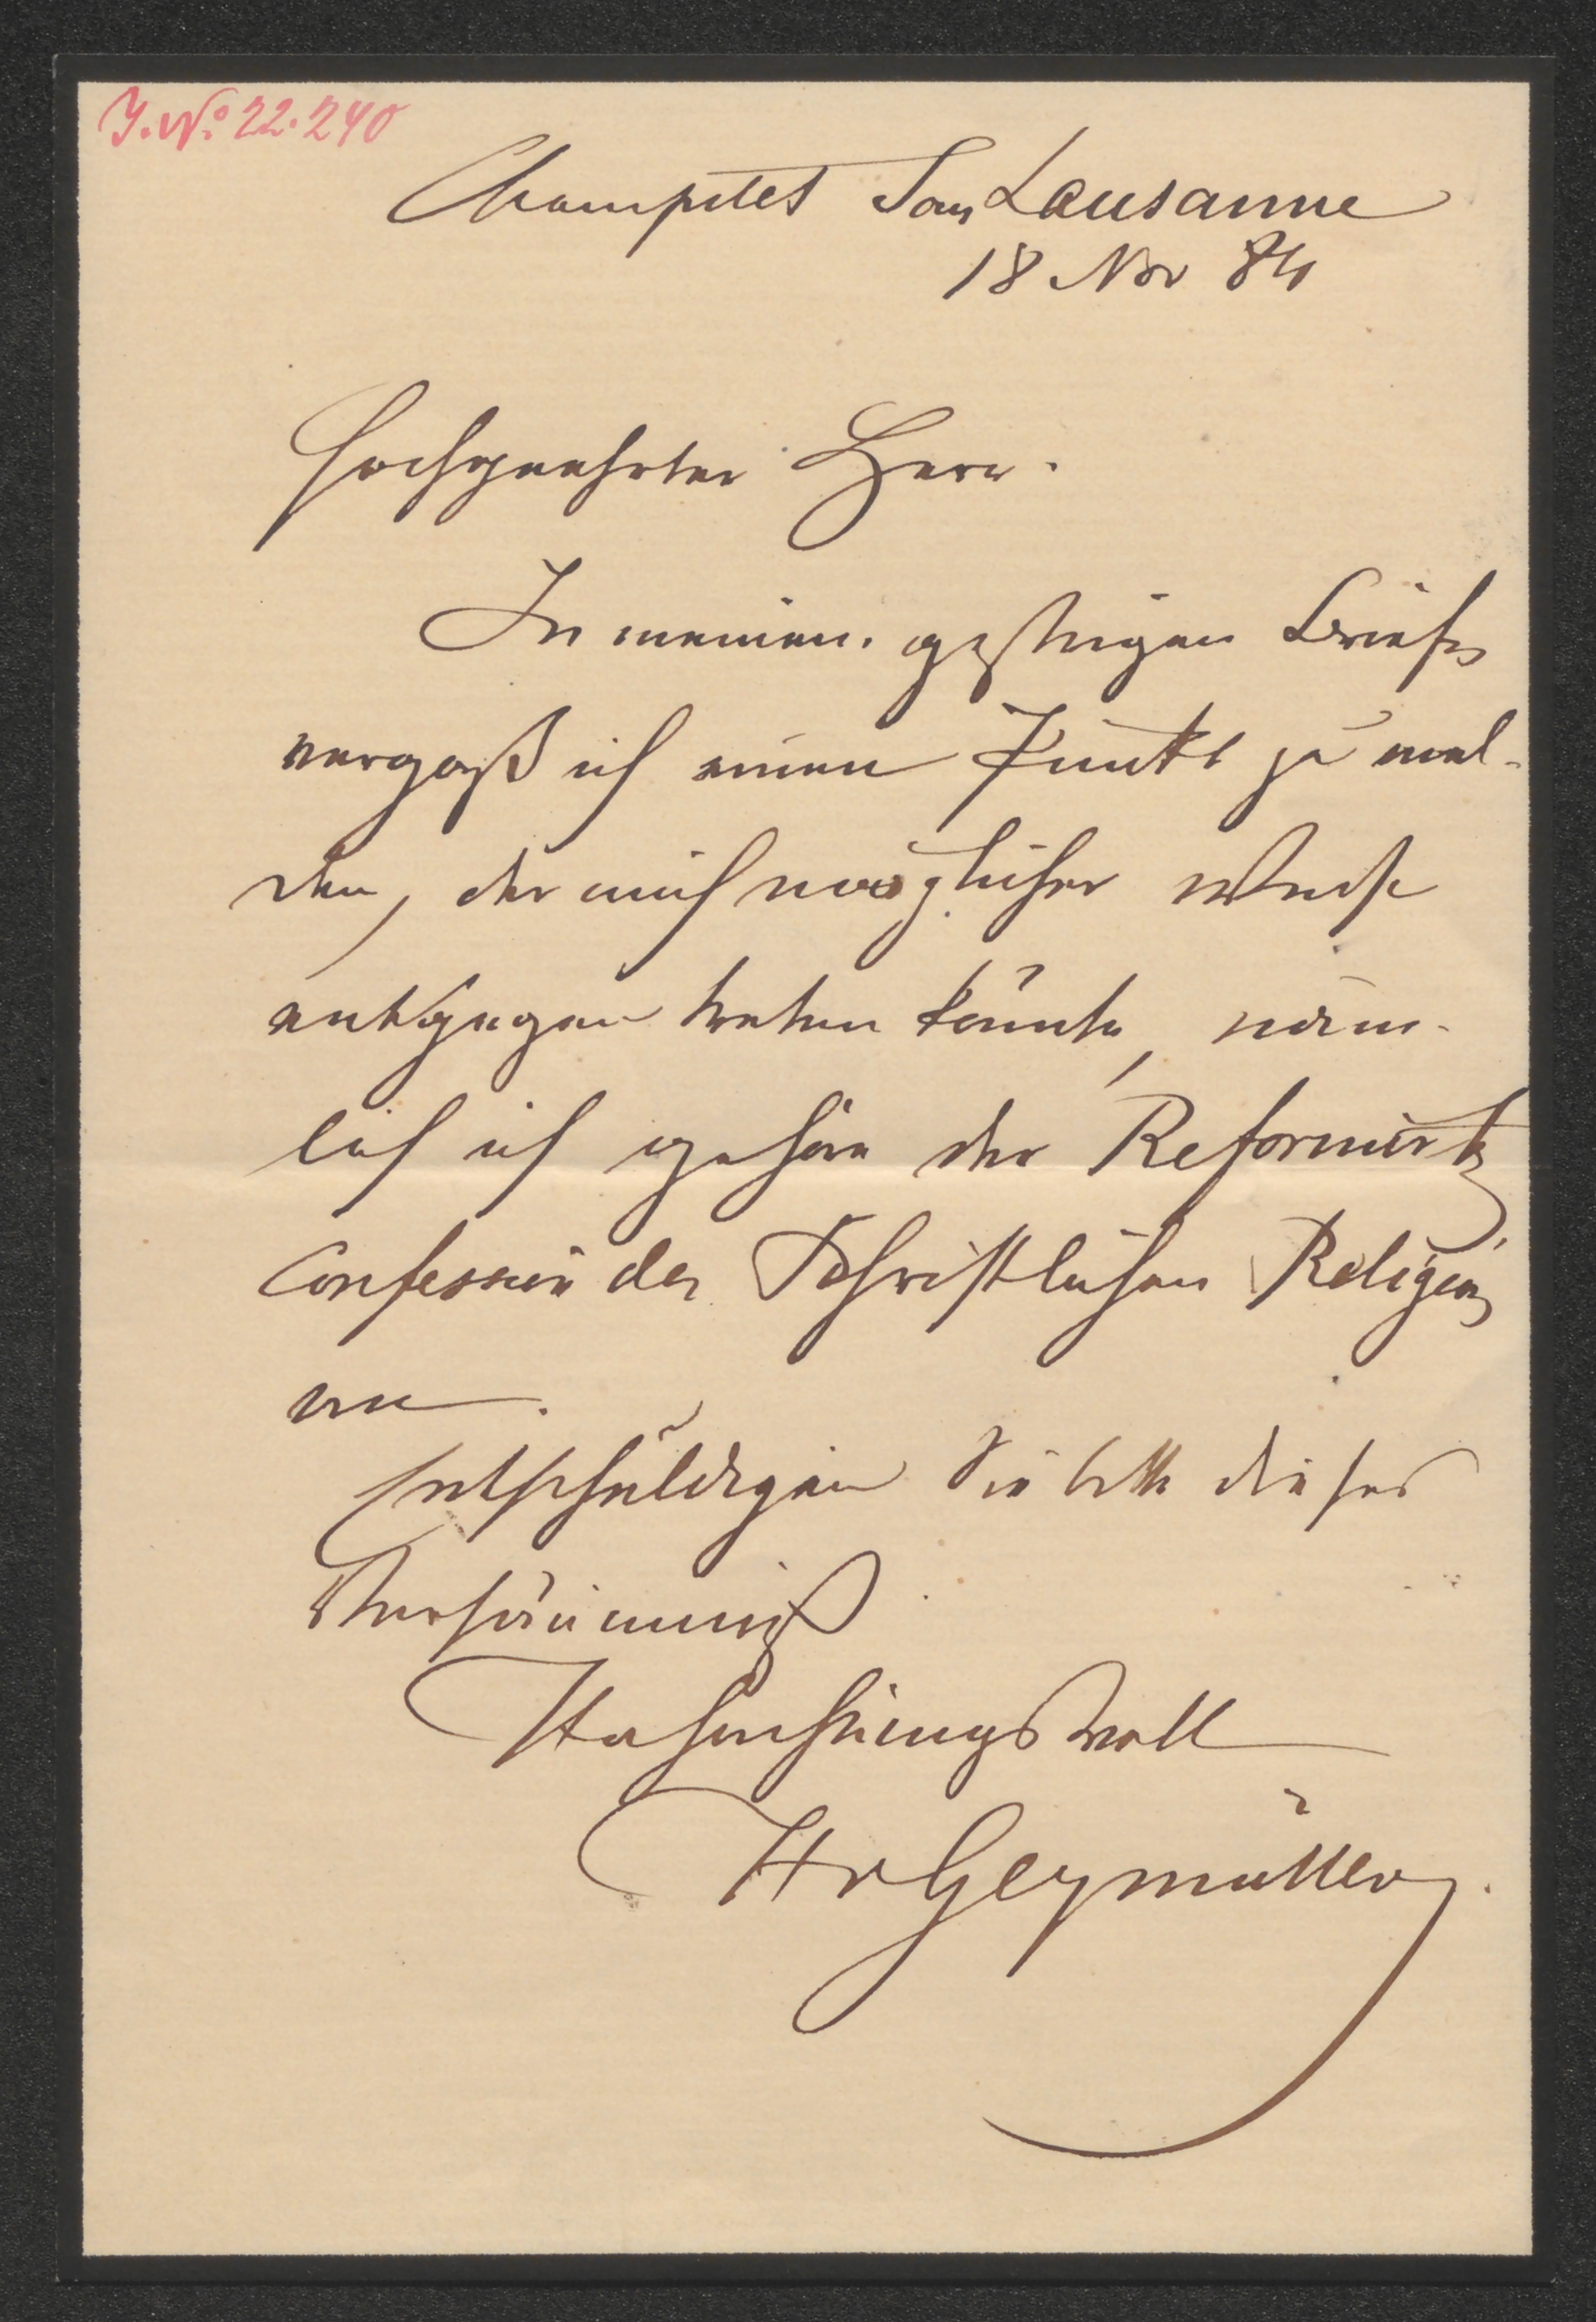 J. No. 22.240
Champitet Sous Lausanne
18 Nov 84
Hochgeehrter Herr.
In meinem gestrigen Briefe
vergaß ich einen Punkt zu mel-
den, der mich möglicher Weise
entgegen treten könnte, näm-
lich ich gehöre der Reformirten
Confession der Christlichen Religion
an.
Entschuldigen Sie bitte dieses
Versäumniß
Hochachtungsvoll
HvGeymüller.